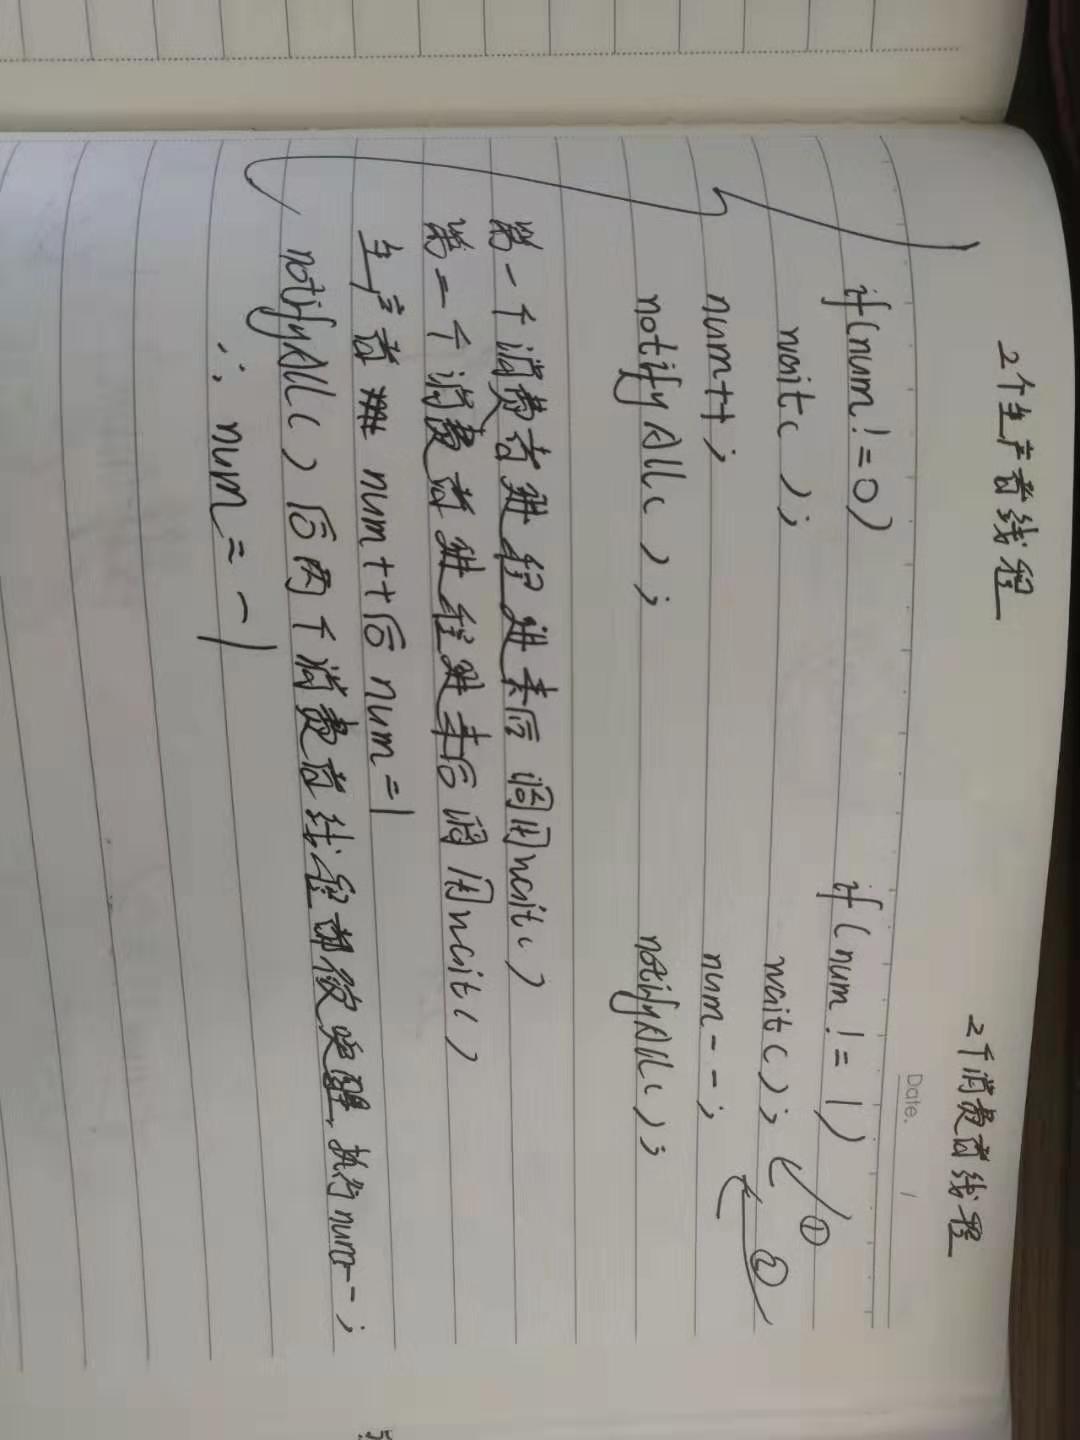 2个生产者线程
2个消费者线程
Date. /
if(num!=0)
wait( );
num++;
notifyAll( );
if(num!=1)
①
wait();
②
num--;
notifyAll();
第一个消费者进程进来后调用wait()
第二个消费者进程进来后调用wait()
生产者 num++后 num=1
notifyAll()后两个消费者线程都被唤醒,执行num--;
∴ num=-1